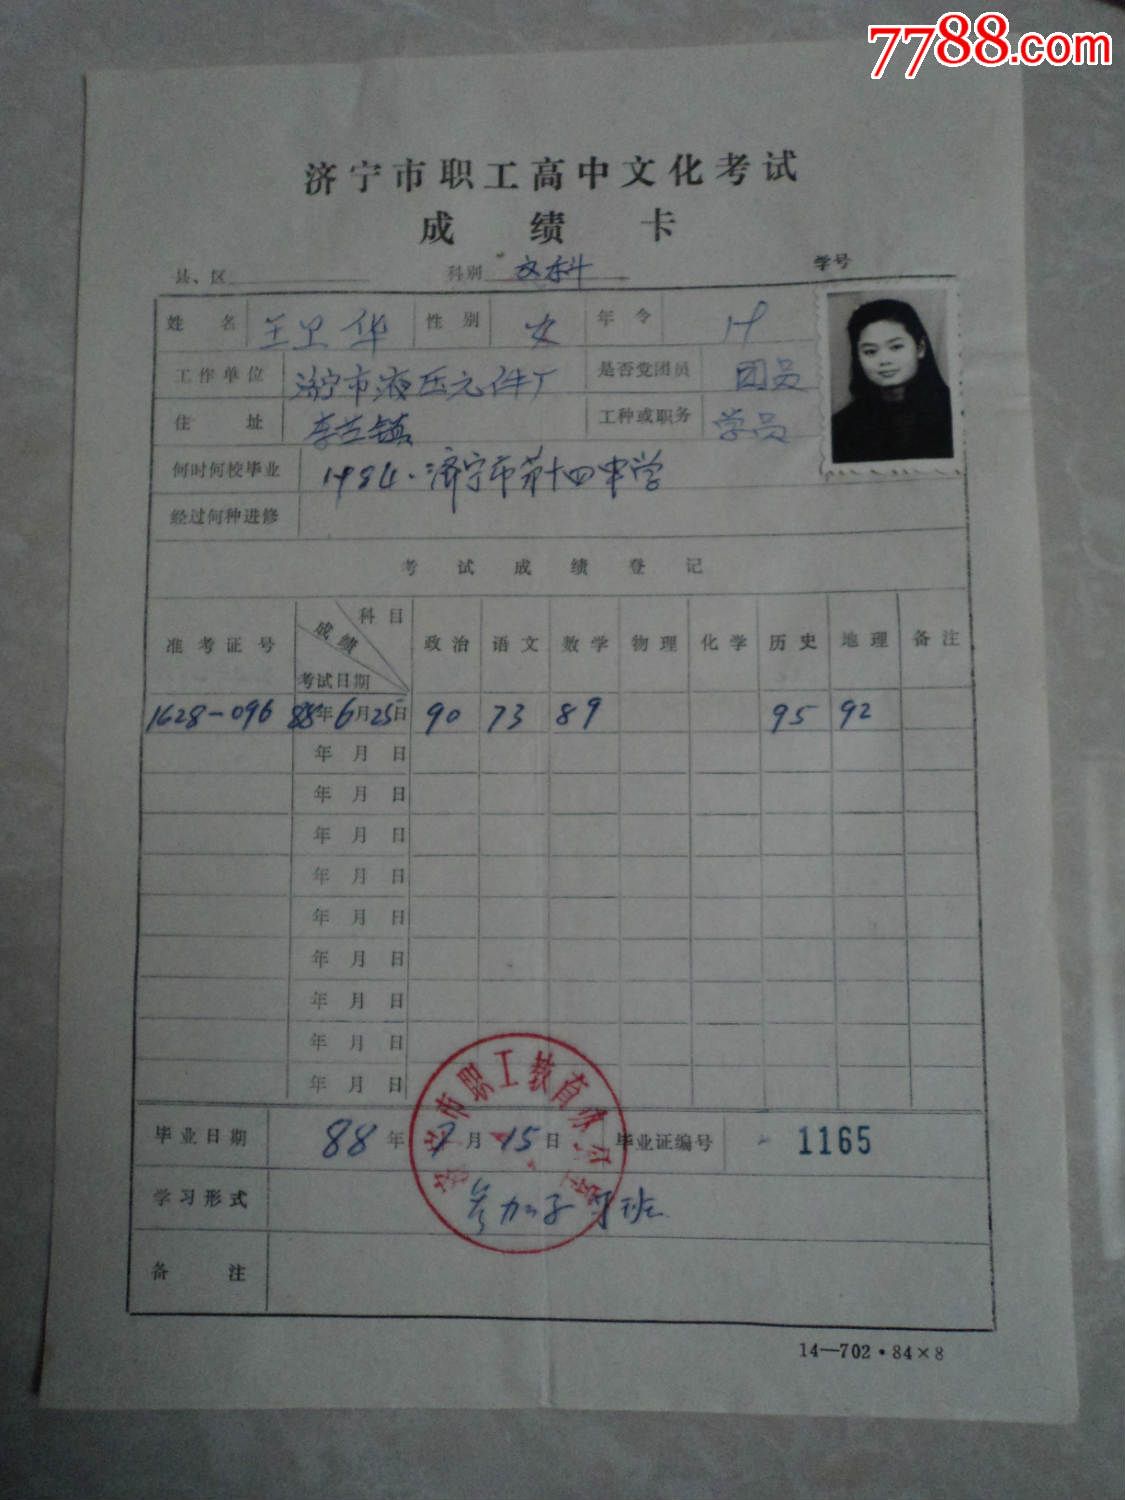 7788.com
济宁市职工高中文化考试
成 绩 卡
县、区 科别 文科 学号
姓 名 王卫华 性 别 女 年 令 19
工作单位 济宁市液压元件厂 是否党团员 团员
住 址 李营镇 工种或职务 学员
何时何校毕业 1984.济宁市第十四中学
经过何种进修
考 试 成 绩 登 记
准考证号 成绩 科目 考试日期 政治 语文 数学 物理 化学 历史 地理 备注
1628-096 88年6月25日 90 73 89 95 92
年 月 日
年 月 日
年 月 日
年 月 日
年 月 日
年 月 日
年 月 日
年 月 日
年 月 日
毕业日期 88年7月15日 毕业证编号 1165
市职工教育办
学习形式 参加 班
备 注
14—702·84×8